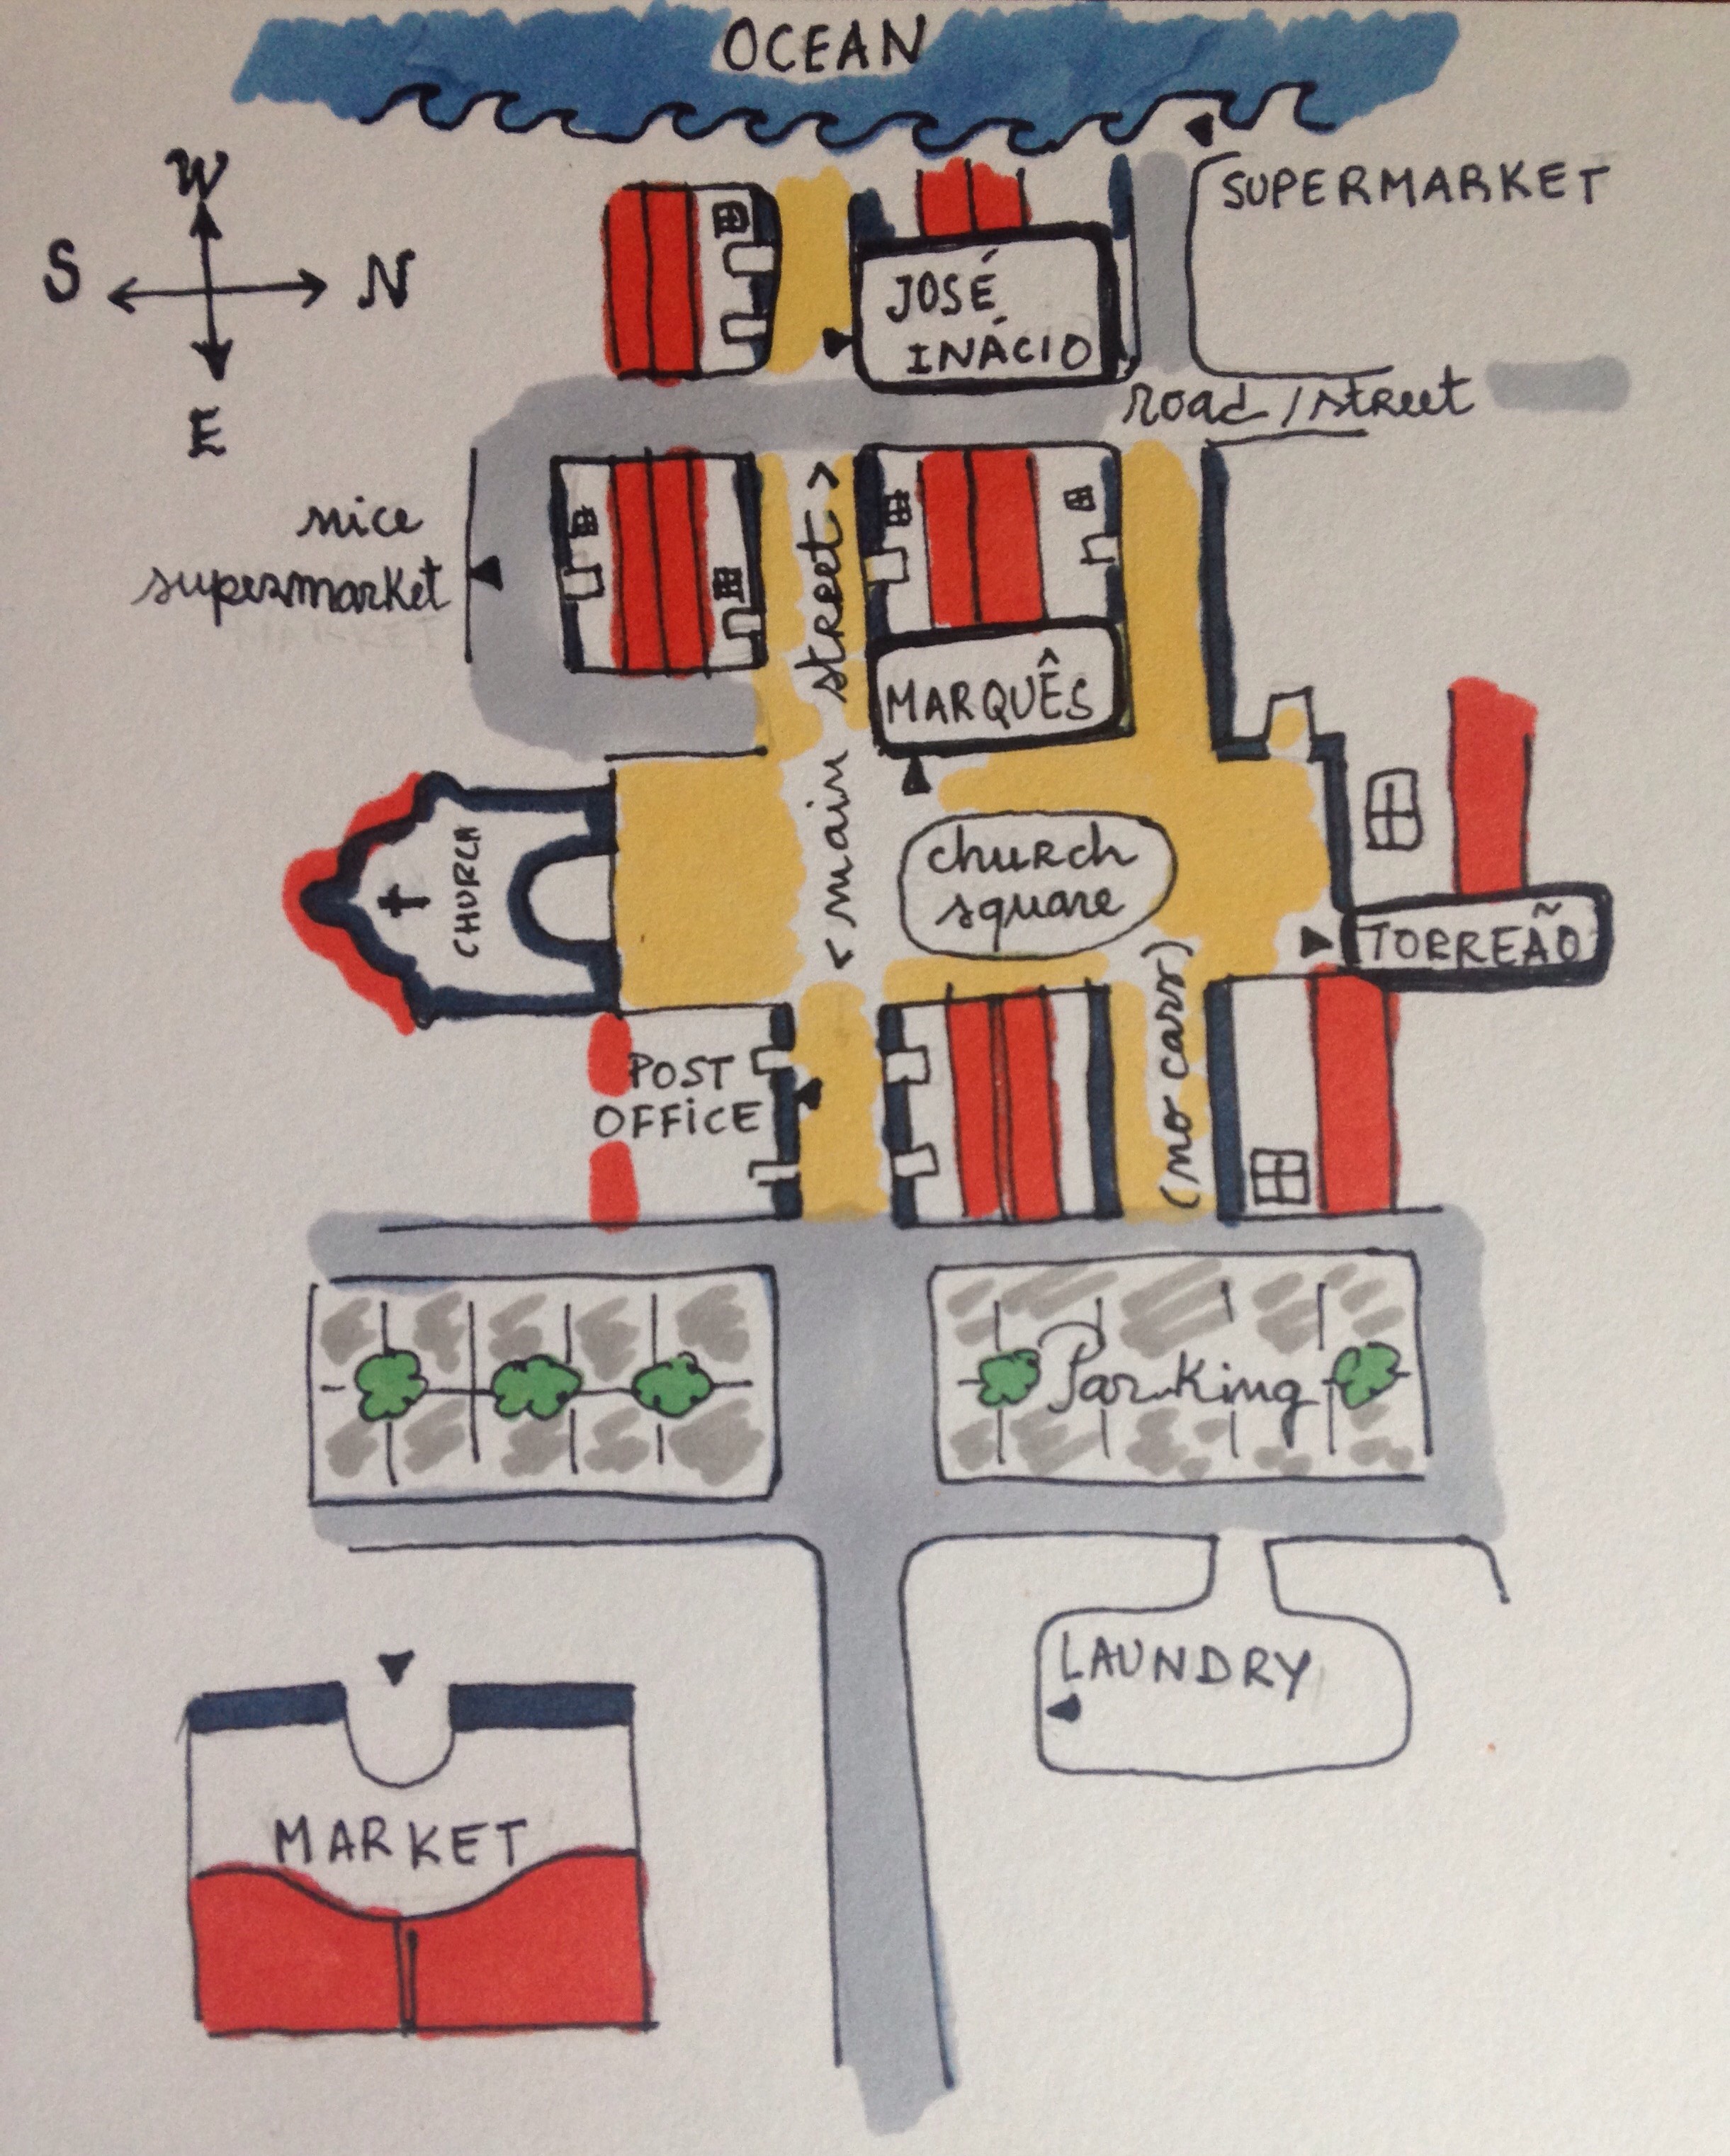 OCEAN
W
S
N
E
SUPERMARKET
JOSÉ
INÁCIO
road / street
nice
supermarket
< main street >
MARQUÊS
CHURCH
church
square
TORREÃO
POST
OFFICE
(no cars)
Parking
LAUNDRY
MARKET